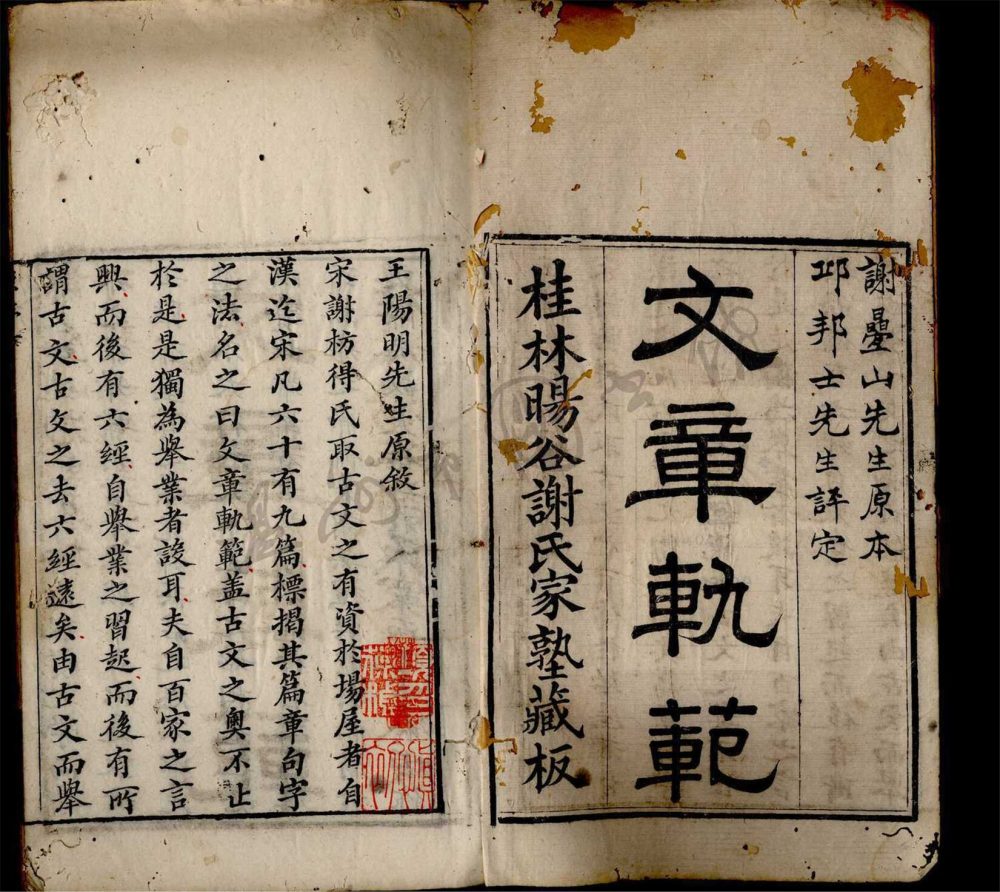 謝曡山先生原本
邱邦士先生評定
文章軌範
桂林暘谷謝氏家塾藏板
王陽明先生原敘
宋謝枋得氏取古文之有資於場屋者自
漢迄宋凡六十有九篇標揭其篇章句字
之法名之曰文章軌範盖古文之奧不止
於是是獨為舉業者設耳夫自百家之言
興而後有六經自舉業之習起而後有所
謂古文古文之去六經遠矣由古文而舉